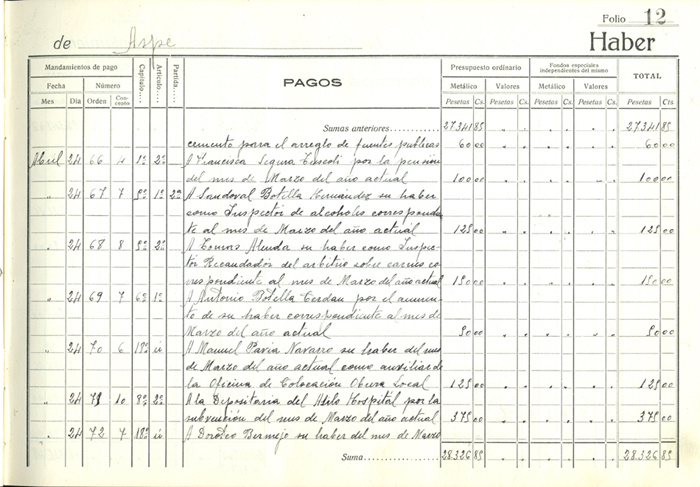 Folio 12
de Aspe Haber
Mandamientos de pago Capítulo.... Artículo.... Partida.... PAGOS Presupuesto ordinario Fondos especiales independientes del mismo TOTAL
Fecha Número Metálico Valores Metálico Valores
Mes Día Orden Concepto Pesetas Cs. Pesetas Cs. Pesetas Cs. Pesetas Cs. Pesetas Cts
Sumas anteriores 27.341 85 27.341 85
cemento para el arreglo de fuentes publicas 60 00 60 00
Abril 24 66 4 1º 2º A Francisca Segura por la pension
del mes de Marzo del año actual 100 00 100 00
" 24 67 7 1º 2º A Sandoval Botella Hernández su haber
como Inspector de alcoholes correspondien
te al mes de Marzo del año actual 125 00 125 00
" 24 68 8 2º A Alenda su haber como Inspec
tor Recaudador del arbitrio sobre carnes co
rrespondiente al mes de Marzo del año actual
" 24 69 7 6º 1º A Antonio Botella Cerdan por el aumen
to de su haber correspondiente al mes de
Marzo del año actual
" 24 70 6 18º A Manuel Pavia Navarro su haber del mes
de Marzo del año actual como auxiliar de
la Oficina de Colocación Obrera Local 125 00 125 00
" 24 71 10 8º 2º A la Depositaria del Hospital por la
subvención del mes de Marzo del año actual 375 00 375 00
" 24 72 7 18º A Doroteo Bermejo su haber del mes de Marzo
Suma 28.326 85 28.326 85